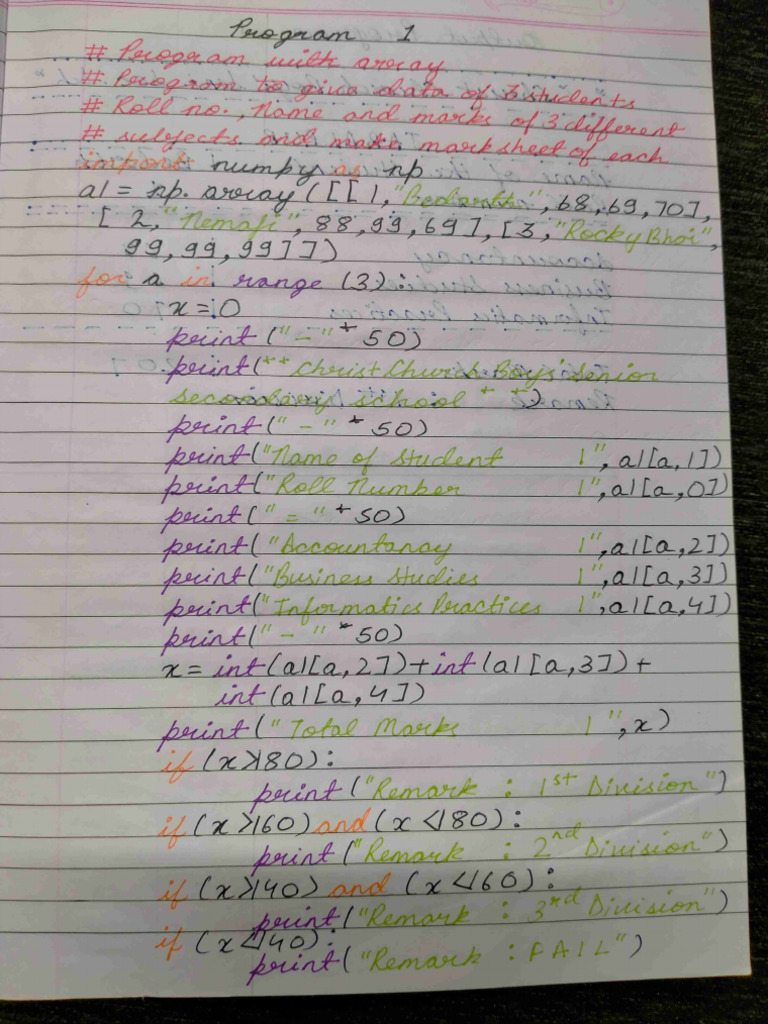 Program 1
# Program with array
# Program to give data of 3 students
# Roll no., Name and marks of 3 different
# subjects and make marksheet of each
import numpy as np
a1 = np. array ([[1, "Bedartha", 68, 69, 70],
[ 2, "Nemafi", 88, 99, 69], [3, "Rocky Bhoi",
99, 99, 99]])
for a in range (3):
x = 0
print ("-" * 50)
print ("** Christ Church Boys' Senior
secondary school * *")
print ("-" * 50)
print ("Name of Student |", a1[a,1])
print ("Roll Number |", a1[a,0])
print ("=" * 50)
print ("Accountancy |", a1[a,2])
print ("Business Studies |", a1[a,3])
print ("Informatics Practices |", a1[a,4])
print ("-" * 50)
x = int (a1[a,2]) + int (a1[a,3]) +
int (a1[a,4])
print ("Total Marks |", x)
if (x>180):
print ("Remark : 1st Division")
if (x>160) and (x<180):
print ("Remark : 2nd Division")
if (x>140) and (x<160):
print ("Remark : 3rd Division")
if (x<140):
print ("Remark : FAIL")